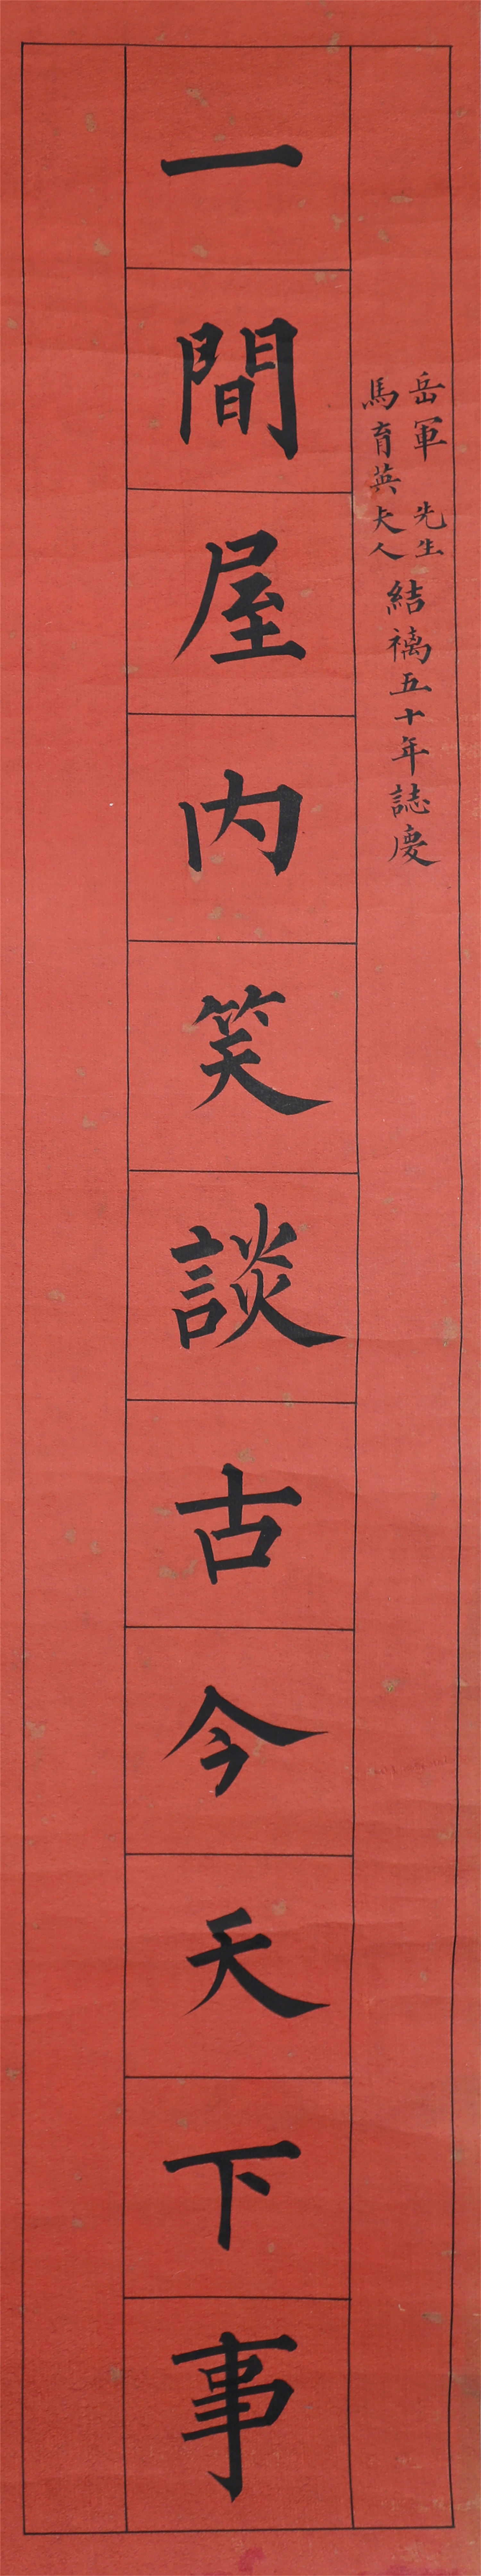 岳軍先生
馬育英夫人
結褵五十年誌慶
一間屋內笑談古今天下事